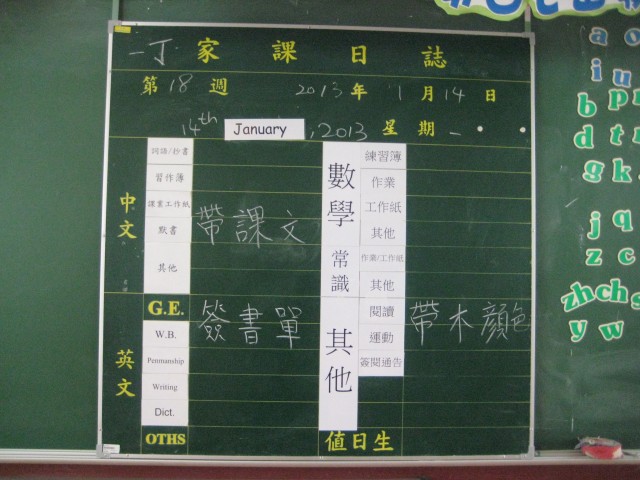 一丁 家課日誌
第18週 2013年1月14日
14th January , 2013 星期一
中文
詞語/抄書
習作簿
課業工作紙
默書
其他
帶課文
英文
G.E.
W.B.
Penmanship
Writing
Dict.
OTHS
簽書單
數學
練習簿
作業
工作紙
其他
常識
作業/工作紙
其他
其他
閱讀
運動
簽閱通告
帶木顏色
值日生
a o
i u
b p
d t r
g k
j q
z c
zh ch s
y w